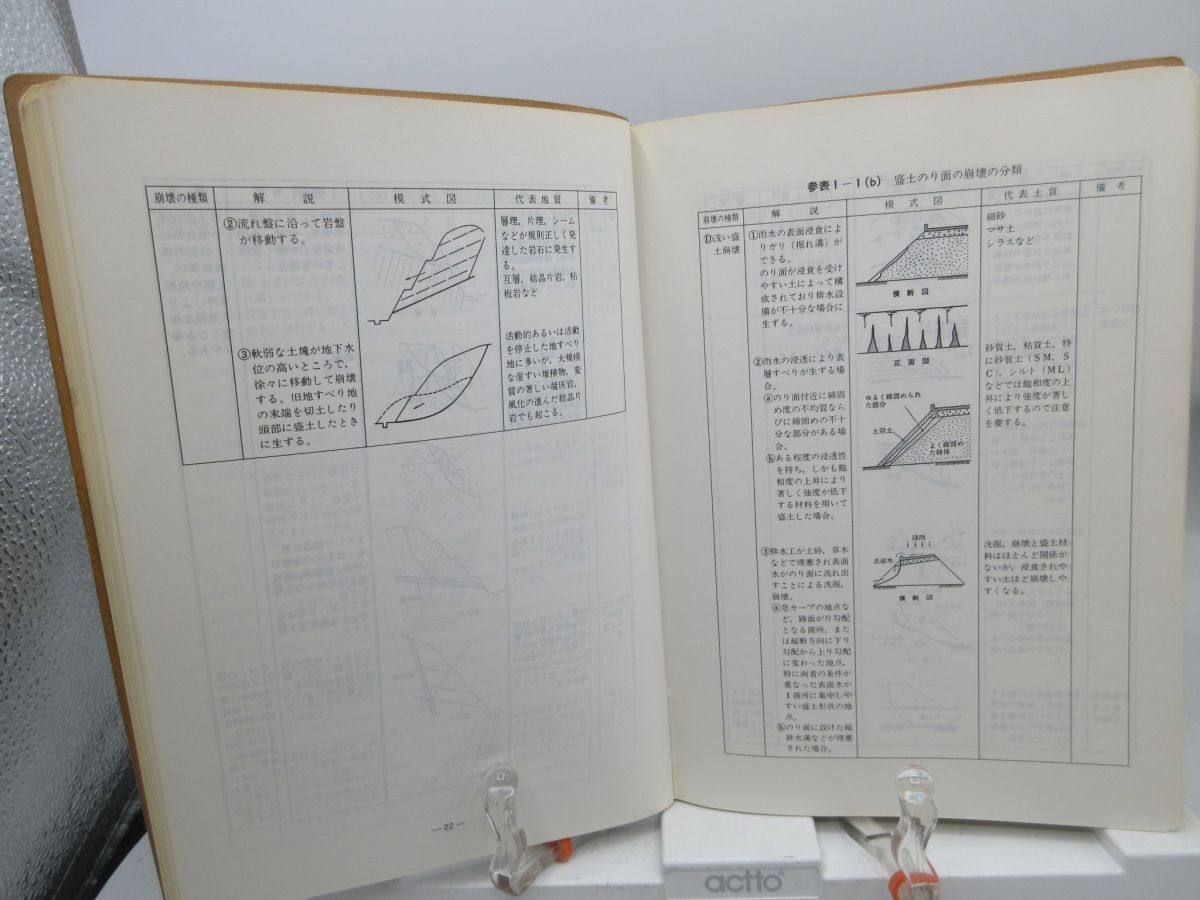 崩壊の種類
解説
模式図
代表地質
備考
②流れ盤に沿って岩盤
が移動する。
層理，片理，シーム
などが規則正しく発
達した岩石に発生す
る。
互層，結晶片岩，粘
板岩など
③軟弱な土塊が地下水
位の高いところで，
徐々に移動して崩壊
する。旧地すべり地
の末端を切土したり
頭部に盛土したとき
に生ずる。
活動的あるいは活動
を停止した地すべり
地に多いが，大規模
な崖すい堆積物，変
質の著しい凝灰岩，
風化の進んだ結晶片
岩でも起こる。
—22—
参表1－1(b) 盛土のり面の崩壊の分類
崩壊の種類
解説
模式図
代表土質
備考
①浅い盛
土崩壊
①雨水の表面浸食によ
りガリ（掘れ溝）が
できる。
のり面が浸食を受け
やすい土によって構
成されており排水設
備が不十分な場合に
生ずる。
横断図
正面図
細砂
マサ土
シラスなど
②雨水の浸透により表
層すべりが生ずる場
合。
ⓐのり面付近に締固
め度の不均質なら
びに締固めの不十
分な部分がある場
合。
ⓑある程度の浸透性
を持ち，しかも飽
和度の上昇により
著しく強度が低下
する材料を用いて
盛土した場合。
ゆるく締固められ
た部分
土羽土
よく締固め
た路体
砂質土，粘質土，特
に砂質土（SM，S
C），シルト（ML）
などでは飽和度の上
昇により強度が著し
く低下するので注意
を要する。
③排水工が土砂，草木
などで埋塞され表面
水がのり面に流れ出
すことによる洗掘，
崩壊。
ⓐ急カーブの地点な
ど，路面が片勾配
となる箇所，また
は縦断方向に下り
勾配から上り勾配
に変わった地点，
特に両者の条件が
重なった表面水が
1箇所に集中しや
すい盛土形状の地
点。
ⓑのり面に設けた縦
排水溝などが埋塞
された場合。
降雨
表面水
横断図
洗掘，崩壊と盛土材
料はほとんど関係が
ないが，浸食されや
すい土ほど崩壊しや
すくなる。
actto